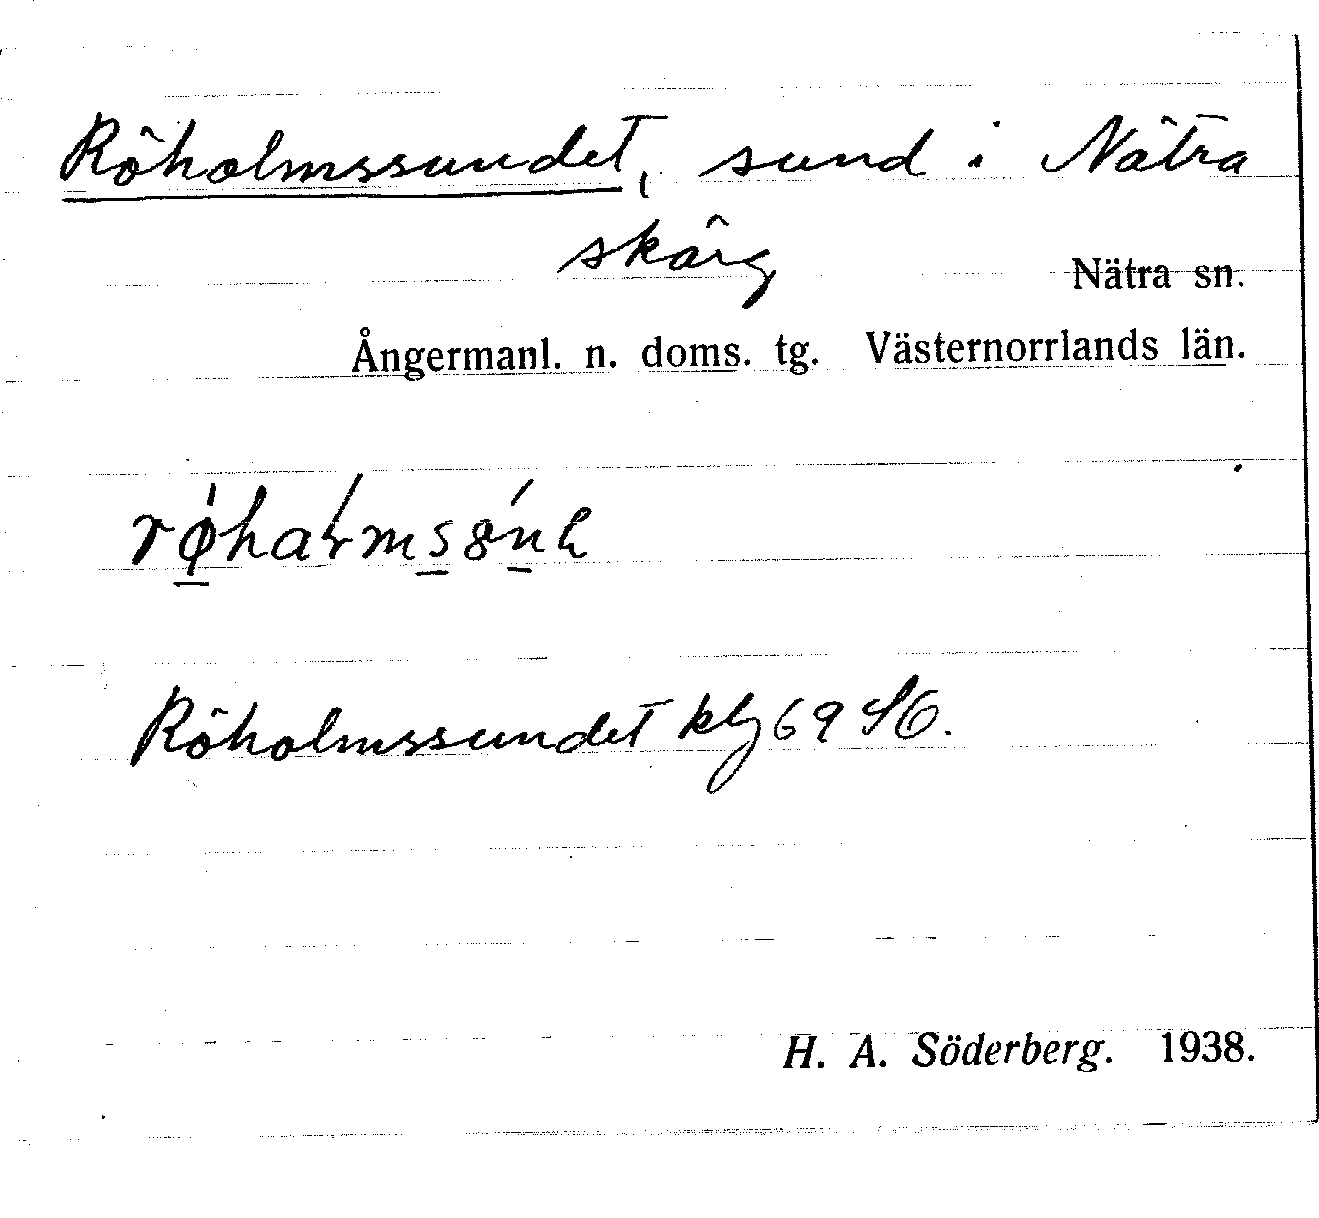 Röholmssundet, sund i Nätra
skärg
Nätra sn.
Ångermanl. n. doms. tg. Västernorrlands län.
Röholmssundet klg 69 SO.
H. A. Söderberg. 1938.